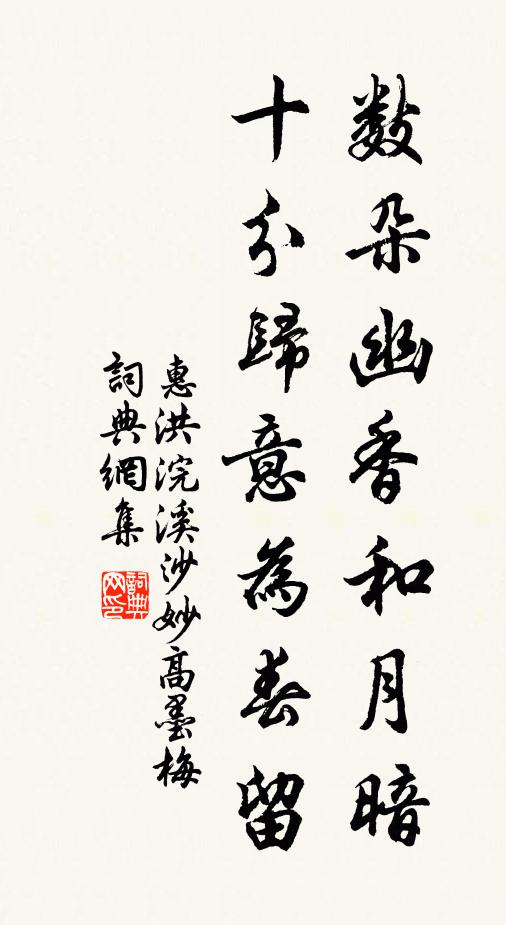 数朵幽香和月暗
十分歸意為春留
惠洪浣溪沙妙高墨梅
詞典網集
詞典网印